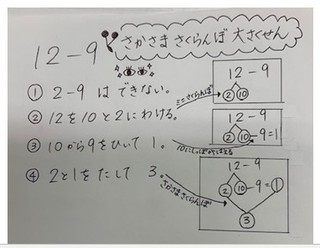 さかさま さくらんぼ 大さくせん
12－9
① 2－9 は できない。
② 12を10と2にわける。
③ 10から9をひいて 1。
④ 2と1をたして 3。
12－9
2 10
ミニさくらんぼ
12－9
2 10 －9＝1
12－9
2 10 －9＝1
3
さかさまさくらんぼ